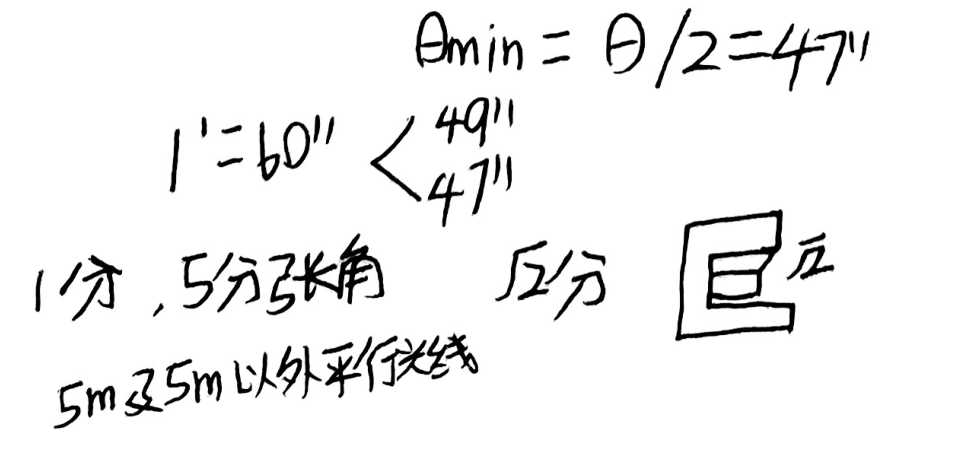 θmin = θ/2=47"
1'=60" < 49"
47"
1分,5分张角 √2分 √2
5m及5m以外平行光线